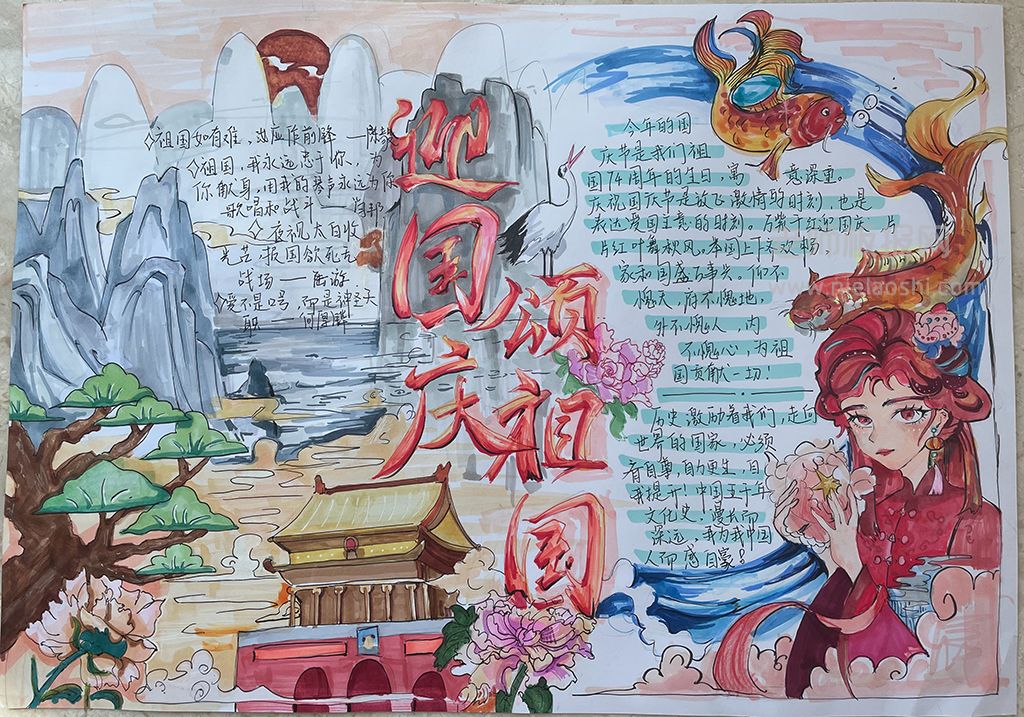 迎国庆
颂祖国
◇祖国如有难，汝应作前锋 ——陈毅
◇祖国，我永远忠于你，为
你献身，用我的琴声永远为你
歌唱和战斗 —— 肖邦
◇夜视太白收
光芒，报国欲死无
战场 —— 陆游
◇爱不是口号，而是神圣天
职
今年的国
庆节是我们祖
国74周年的生日，寓 意深重。
庆祝国庆节是放飞激情的时刻，也是
表达爱国主意的时刻。万紫千红迎国庆，片
片红叶舞秋风，举国上下齐欢畅，
家和国盛万事兴。仰不
愧天，府不愧地，
外不愧人，内
不愧心，为祖
国贡献一切！
历史激励着我们，走向
世界的国家，必须
有自尊，自力更生，自
我提升！中国五千年
文化史！漫长而
深远，我为我中国
人而感自豪！
www.pielaoshi.com